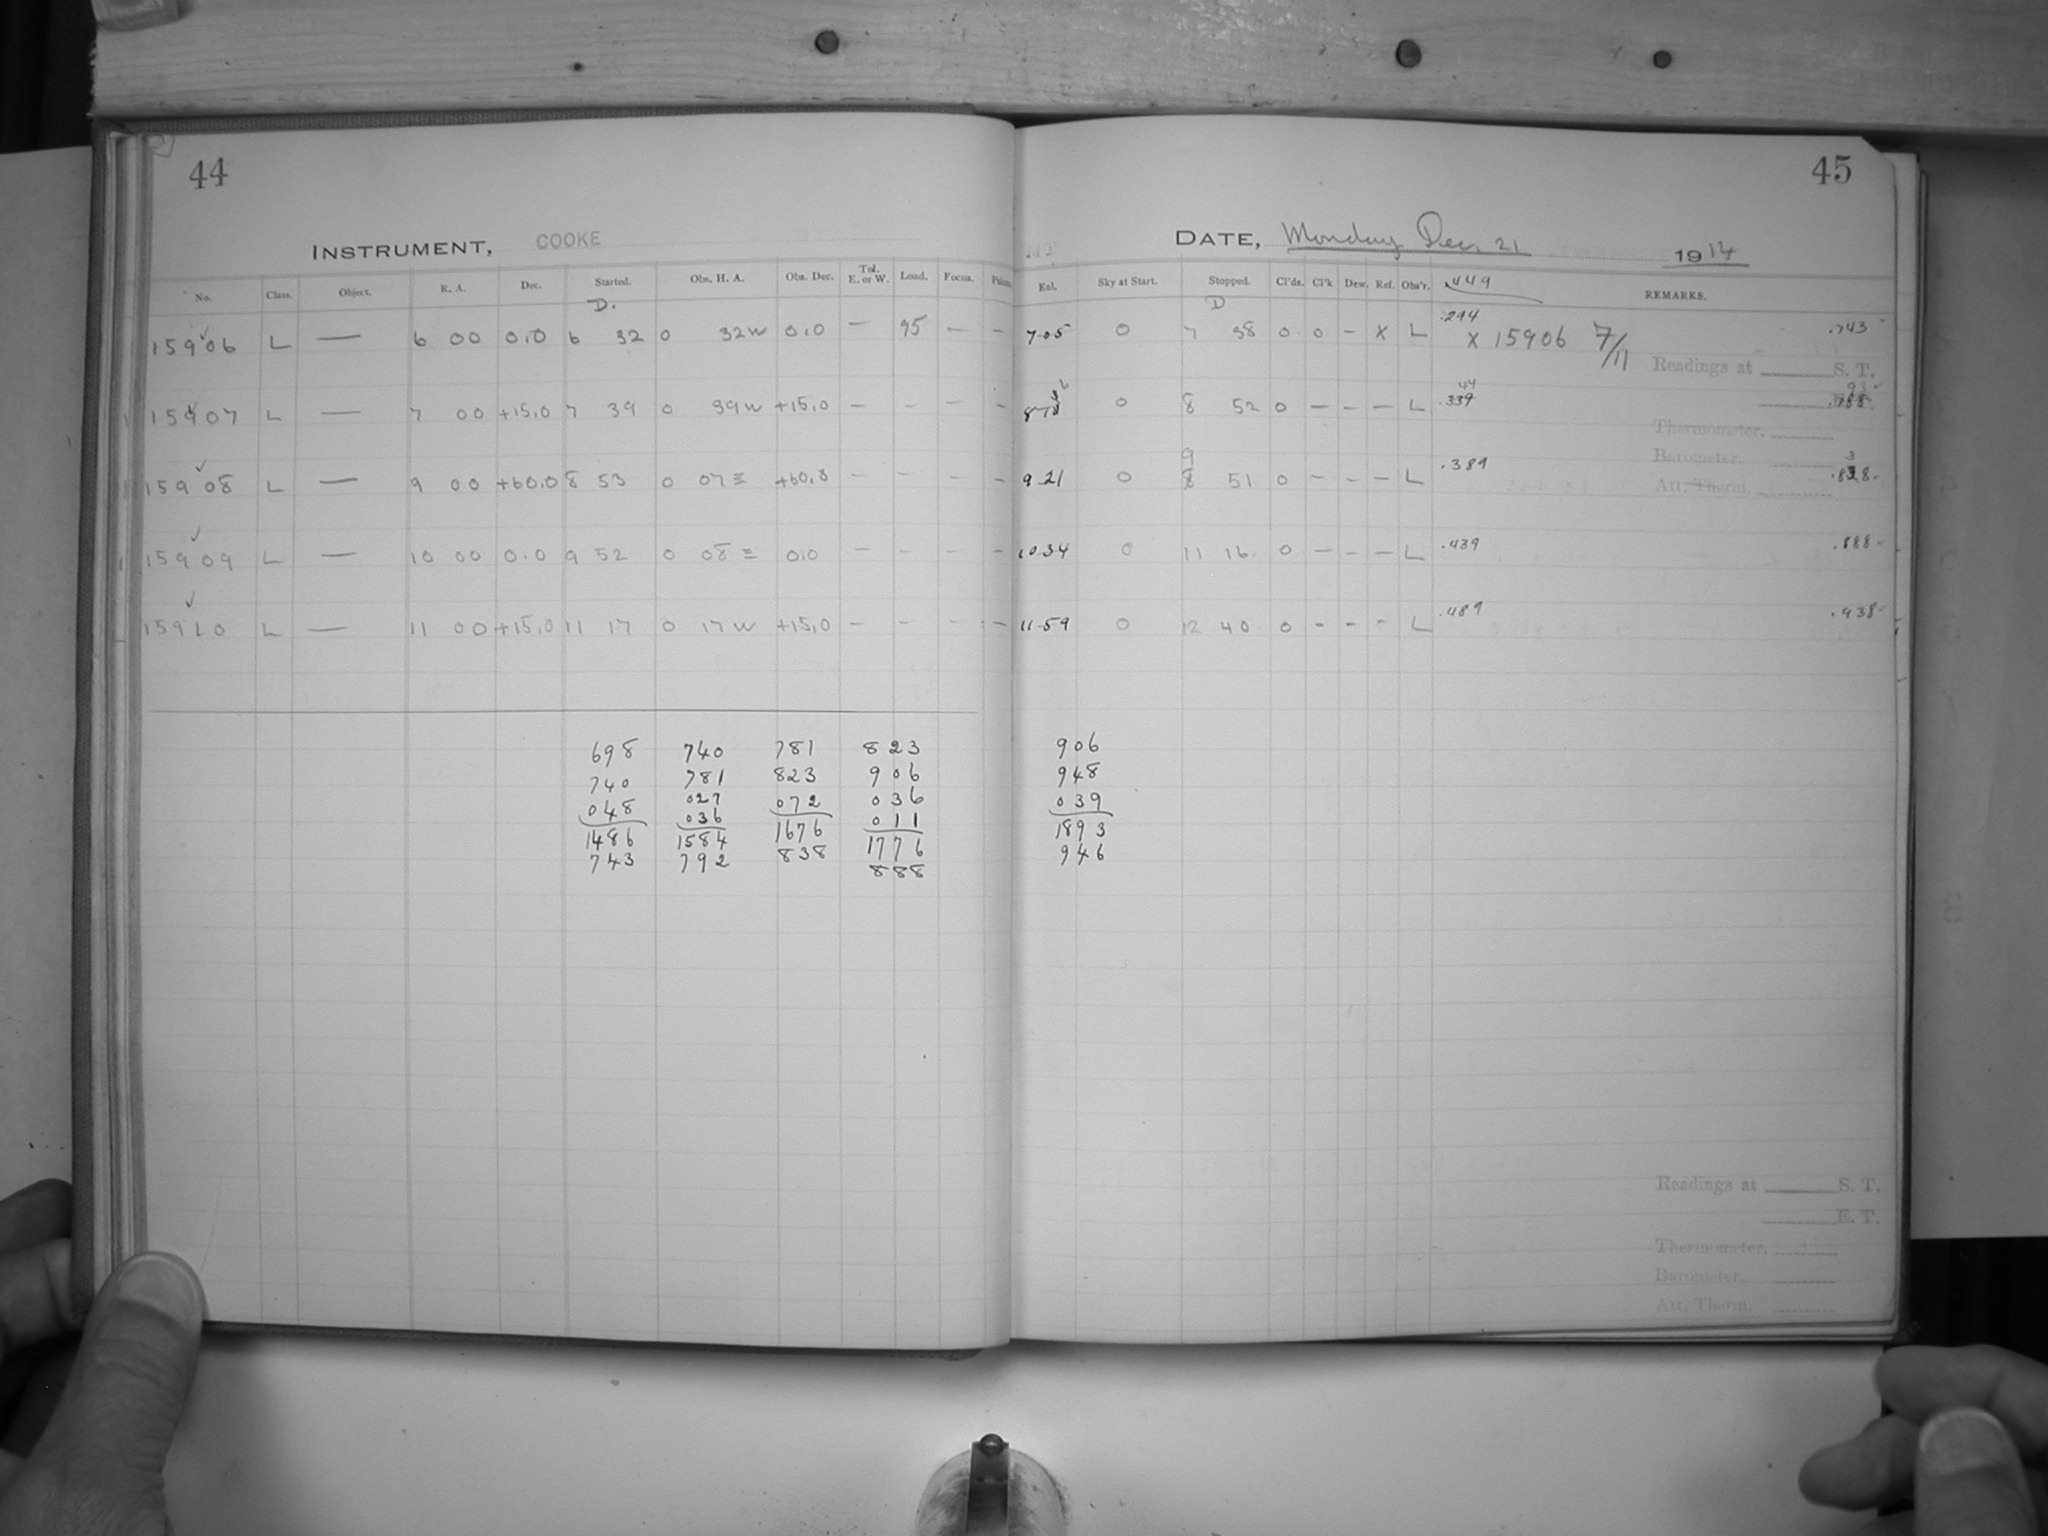 44
INSTRUMENT, COOKE
No. Class. Object. R. A. Dec. Started. Obs. H. A. Obs. Dec. Tel. E. or W. Load. Focus.
D.
15906 L — 6 00 0.0 6 32 0 32w 0.0 — 95 — —
15907 L — 7 00 +15.0 7 39 0 39w +15.0 — — — —
15908 L — 9 00 +60.0 8 53 0 07E +60.0 — — — —
15909 L — 10 00 0.0 9 52 0 08E 0.0 — — — —
15910 L — 11 00 +15.0 11 17 0 17w +15.0 — — — —
698 740 781 823
740 781 823 906
048 027 072 036
036 011
1486 1584 1676 1776
743 792 838 888
45
DATE, Monday Dec. 21 1914
Sky at Start. Stopped. Cl'ds. Cl'k Dew. Ref. Obs'r. .449 REMARKS.
D
7.05 0 7 38 0 0 — X L .294 X 15906 7/11 .743
Readings at S. T.
0 8 52 0 — — — L .339
Thermometer,
Barometer.
9.21 0 51 0 — — — L .389
Att. Therm.
10.34 0 11 16 0 — — — L .439 .888
11.59 0 12 40 0 — — — L .489 .938
906
948
039
1893
946
Readings at S. T.
E. T.
Thermometer,
Barometer.
Att. Therm.